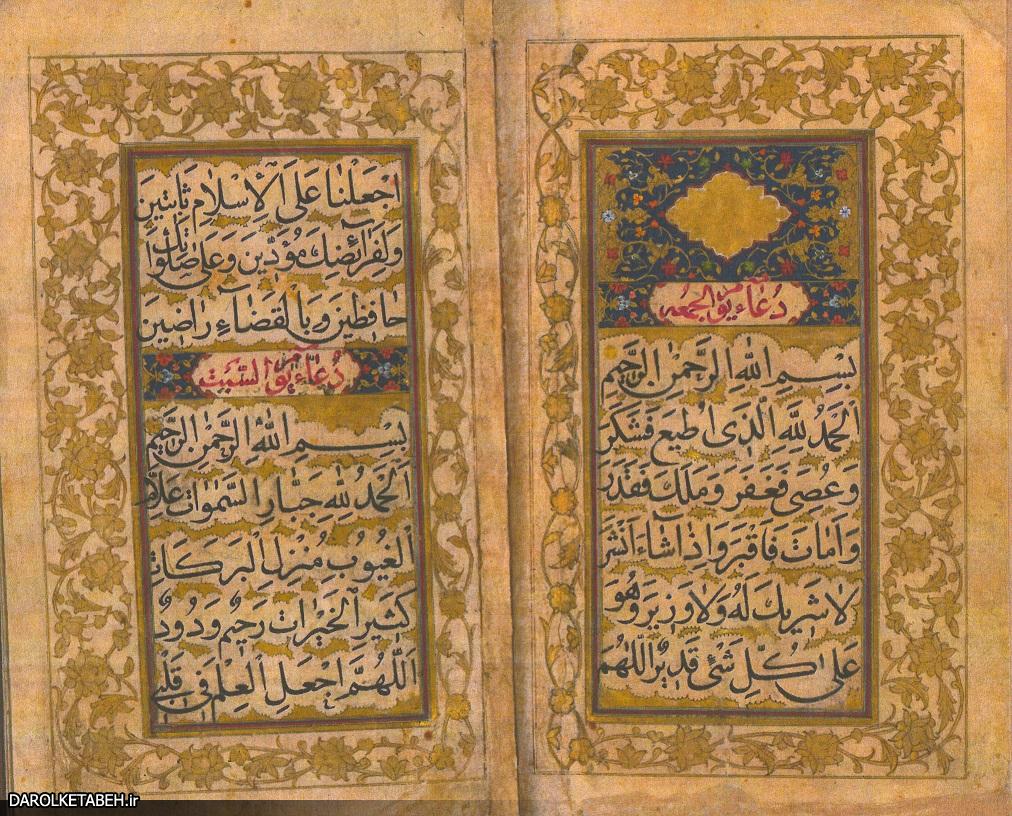 دُعاءِ يَوْمِ الجُمعه
بِسْمِ اللّٰهِ الرَّحْمٰنِ الرَّحيمِ
اَلْحَمْدُ لِلّٰهِ الَّذى اُطيعَ فَشَكَرَ
وَعُصِىَ فَغَفَرَ وَمَلَكَ فَقَدَرَ
وَاَمٰاتَ فَاَقْبَرَ وَاِذٰا شٰاءَ اَنْشَرَ
لاٰ شَريكَ لَهُ وَلاٰ وَزيرَ وَهُوَ
عَلىٰ كُلِّ شَىْءٍ قَديرٌ اَللّٰهُمَّ
اجْعَلْنٰا عَلَى الْاِسْلاٰمِ ثٰابِتينَ
وَلِفَرٰائِضِكَ مُؤَدّينَ وَعَلىٰ صَلَوٰاتِكَ
حٰافِظينَ وَبِالْقَضٰاءِ رٰاضينَ
دُعٰاءِ يَوْمِ السَّبْت
بِسْمِ اللّٰهِ الرَّحْمٰنِ الرَّحيمِ
اَلْحَمْدُ لِلّٰهِ جَبّٰارِ السَّمٰوٰاتِ عَلّٰامِ
الْغُيُوبِ مُنْزِلِ الْبَرَكٰاتِ
كَثيرِ الْخَيْرٰاتِ رَحيمٌ وَدُودٌ
اَللّٰهُمَّ اجْعَلِ الْعِلْمَ فى قَلْبى
DAROLKETABEH.ir